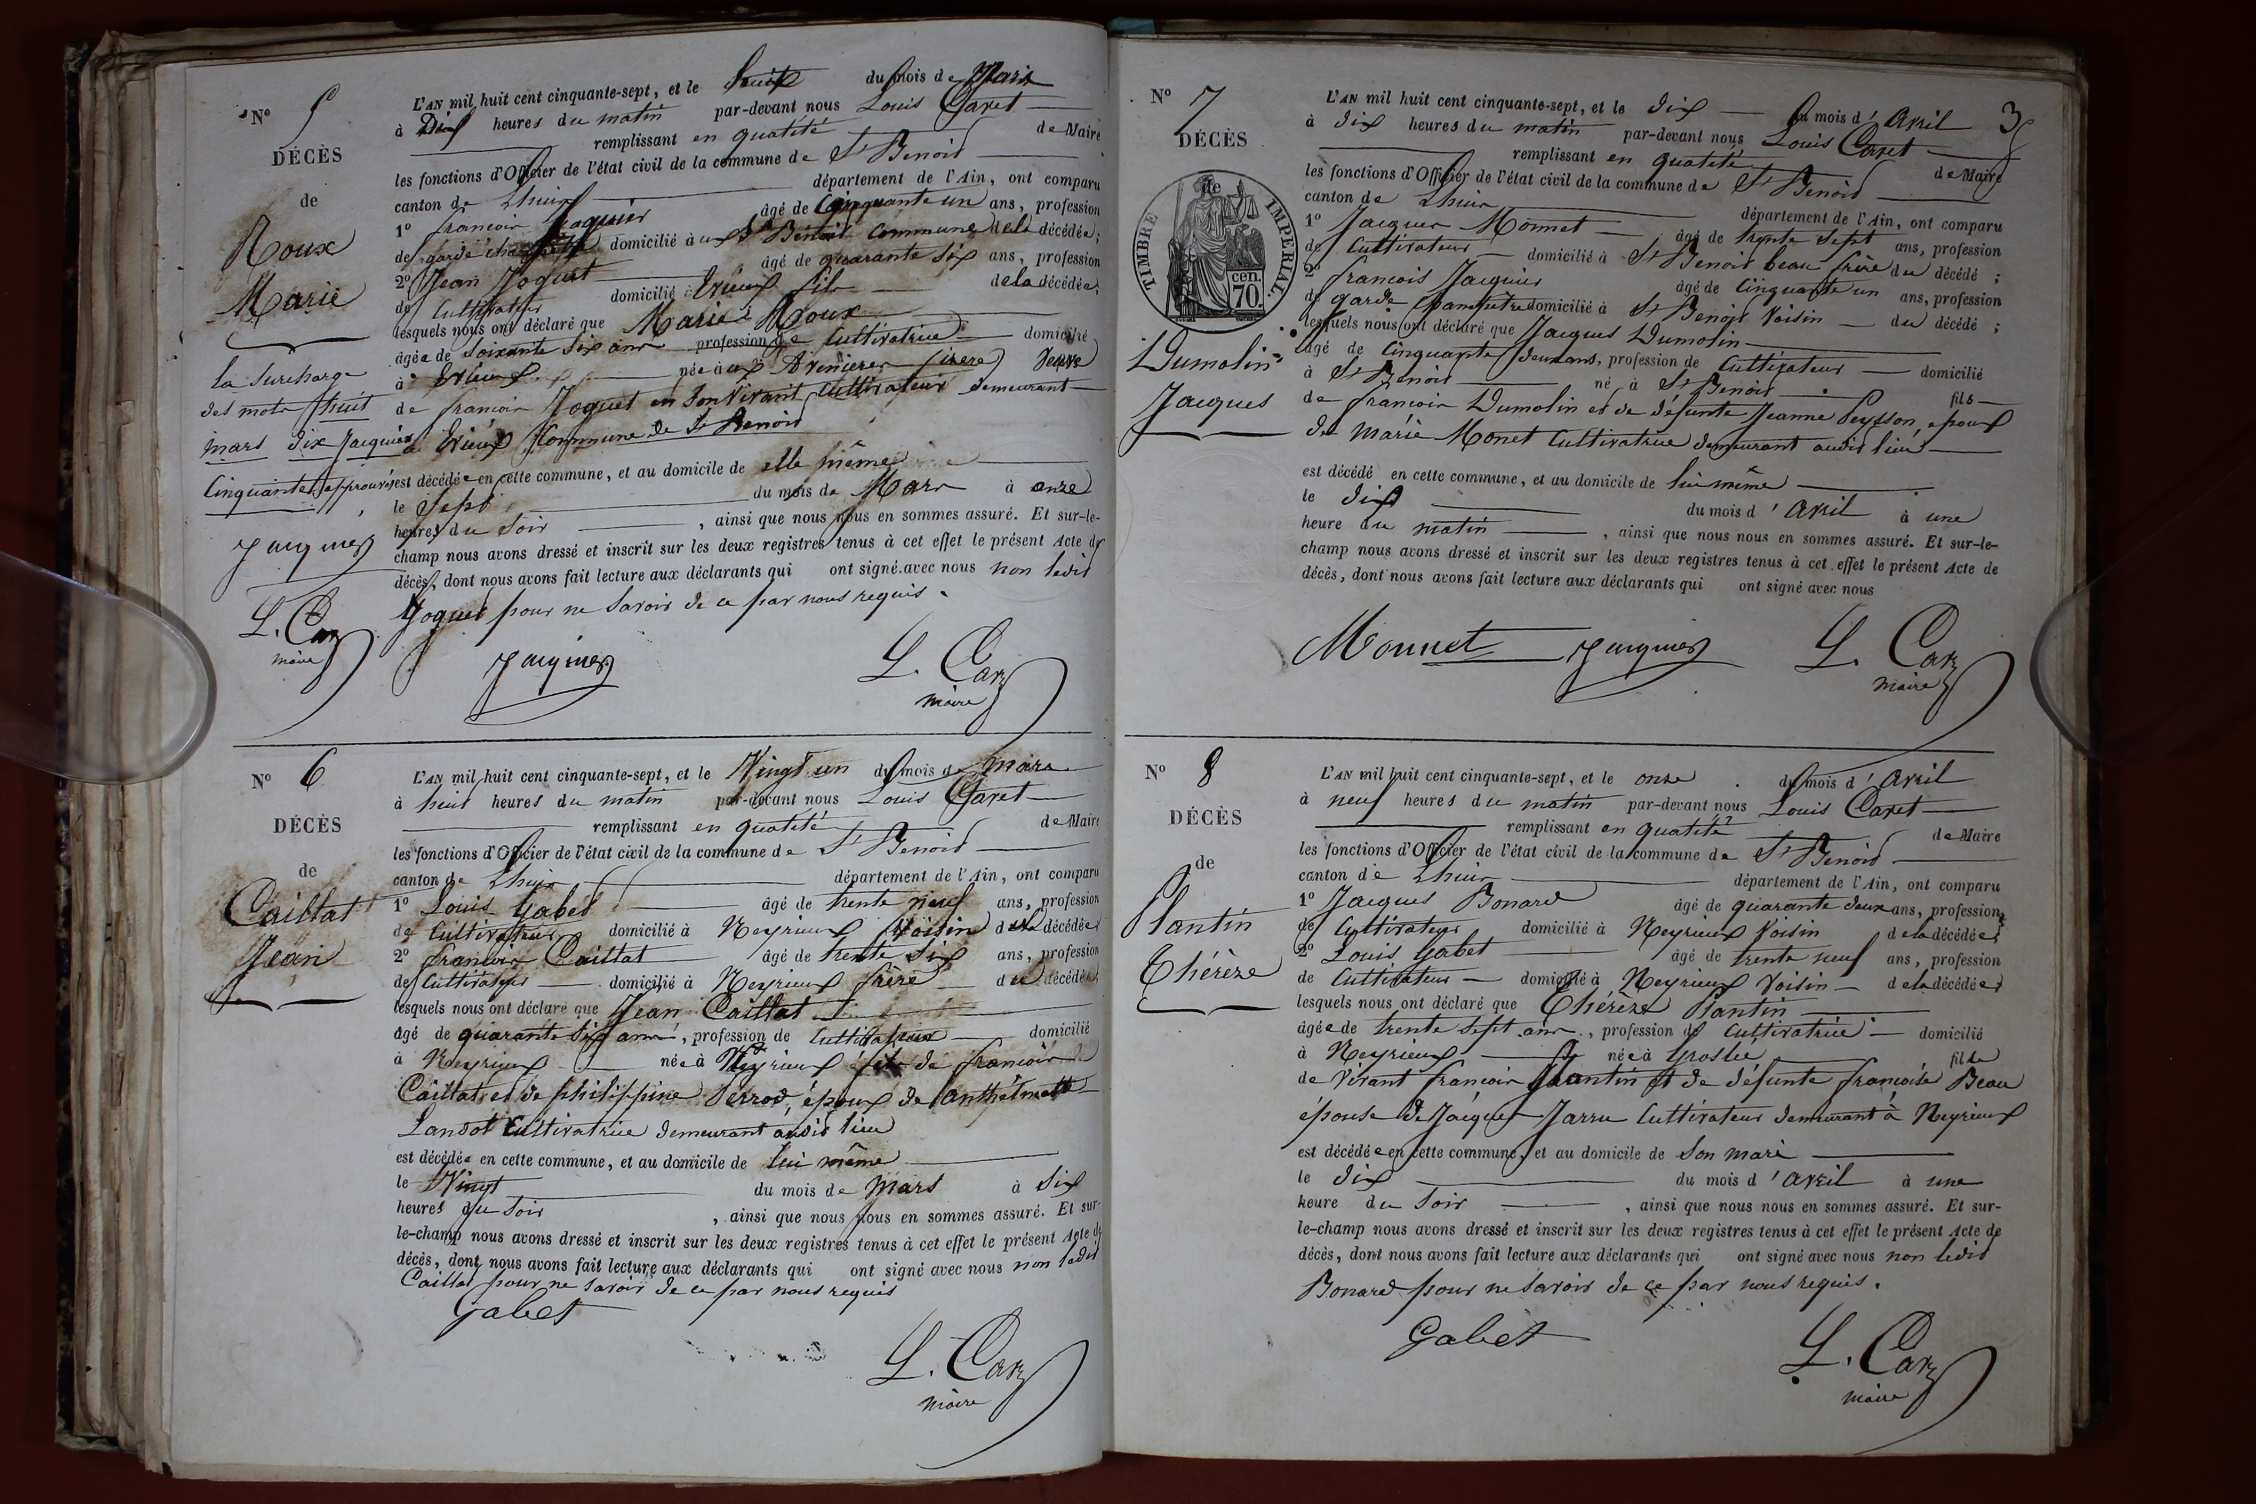 N° 5
DÉCÈS
de
Roux
Marie
la surcharge
des mots huit
mars dix Jacquier
Cinquante approuvés
Jacquier
L. Car
maire
L'AN mil huit cent cinquante-sept, et le huit du mois de Mars
à Dix heures du matin par-devant nous Louis Caret
remplissant en qualité de Maire
les fonctions d'Officier de l'état civil de la commune de St Benoit
canton de Lhuis département de l'Ain, ont comparu
1° françois Jacquier âgé de Cinquante un ans, profession
de garde champêtre domicilié à St Benoit Commune de la décédée;
2° Jean Joguet âgé de quarante six ans, profession
de Cultivateur domicilié à Evieux fils de la décédée;
lesquels nous ont déclaré que Marie Roux
âgée de soixante six ans profession de Cultivatrice domicilié
à Evieux née à aux Avenieres (isere) Veuve
de françois Joguet en son vivant Cultivateur demeurant
à Evieux Commune de St Benoit
est décédée en cette commune, et au domicile de elle même
le Sept du mois de Mars à onze
heures du Soir, ainsi que nous nous en sommes assuré. Et sur-le-
champ nous avons dressé et inscrit sur les deux registres tenus à cet effet le présent Acte de
décès, dont nous avons fait lecture aux déclarants qui ont signé avec nous non ledit
Joguet pour ne savoir de ce par nous requis.
Jacquier L. Car
maire
N° 6
DÉCÈS
de
Caillat
Jean
L'AN mil huit cent cinquante-sept, et le Vingt un du mois de mars
à huit heures du matin par-devant nous Louis Caret
remplissant en qualité de Maire
les fonctions d'Officier de l'état civil de la commune de St Benoit
canton de Lhuis département de l'Ain, ont comparu
1° Louis Gabet âgé de trente neuf ans, profession
de Cultivateur domicilié à Neyrieux Voisin du décédé
2° françois Caillat âgé de trente six ans, profession
de Cultivateur domicilié à Neyrieux frère du décédé
lesquels nous ont déclaré que Jean Caillat
âgé de quarante six ans, profession de Cultivateur domicilié
à Neyrieux né à Neyrieux fils de françois
Caillat et de philippine Perrod, époux de anthelmette
Landot Cultivatrice demeurant audit lieu
est décédé en cette commune, et au domicile de lui même
le Vingt du mois de mars à six
heures du soir, ainsi que nous nous en sommes assuré. Et sur-
le-champ nous avons dressé et inscrit sur les deux registres tenus à cet effet le présent Acte de
décès, dont nous avons fait lecture aux déclarants qui ont signé avec nous non ledit
Caillat pour ne savoir de ce par nous requis
Gabet
L. Car
maire
35
N° 7
DÉCÈS
de
TIMBRE IMPERIAL.
cen.
70.
Dumolin
Jacques
L'AN mil huit cent cinquante-sept, et le dix du mois d'avril
à dix heures du matin par-devant nous Louis Caret
remplissant en qualité de Maire
les fonctions d'Officier de l'état civil de la commune de St Benoit
canton de Lhuis département de l'Ain, ont comparu
1° Jacques Monnet âgé de trente sept ans, profession
de Cultivateur domicilié à St Benoit beau frère du décédé;
2° françois Jacquier âgé de cinquante un ans, profession
de garde champêtre domicilié à St Benoit Voisin du décédé;
lesquels nous ont déclaré que Jacques Dumolin
âgé de Cinquante deux ans, profession de Cultivateur domicilié
à St Benoit né à St Benoit fils
de françois Dumolin et de défunte Jeanne Peysson, époux
de Marie Monet Cultivatrice demeurant audit lieu
est décédé en cette commune, et au domicile de lui même
le dix du mois d'avril à une
heure du matin, ainsi que nous nous en sommes assuré. Et sur-le-
champ nous avons dressé et inscrit sur les deux registres tenus à cet effet le présent Acte de
décès, dont nous avons fait lecture aux déclarants qui ont signé avec nous
Monnet Jacquier L. Car
maire
N° 8
DÉCÈS
de
Plantin
Thérèze
L'AN mil huit cent cinquante-sept, et le onze du mois d'avril
à neuf heures du matin par-devant nous Louis Caret
remplissant en qualité de Maire
les fonctions d'Officier de l'état civil de la commune de St Benoit
canton de Lhuis département de l'Ain, ont comparu
1° Jacques Bonard âgé de quarante deux ans, profession
de Cultivateur domicilié à Neyrieux Voisin de la décédée
2° Louis Gabet âgé de trente neuf ans, profession
de Cultivateur domicilié à Neyrieux Voisin de la décédée
lesquels nous ont déclaré que Thérèze Plantin
âgée de trente sept ans, profession de Cultivatrice domicilié
à Neyrieux née à Groslée fille
de Vivant françois Plantin et de défunte françoise Beau
épouse de Jacques Jarru Cultivateur demeurant à Neyrieux
est décédée en cette commune, et au domicile de Son mari
le dix du mois d'avril à une
heure du Soir, ainsi que nous nous en sommes assuré. Et sur-
le-champ nous avons dressé et inscrit sur les deux registres tenus à cet effet le présent Acte de
décès, dont nous avons fait lecture aux déclarants qui ont signé avec nous non ledit
Bonard pour ne savoir de ce par nous requis.
Gabet L. Car
maire